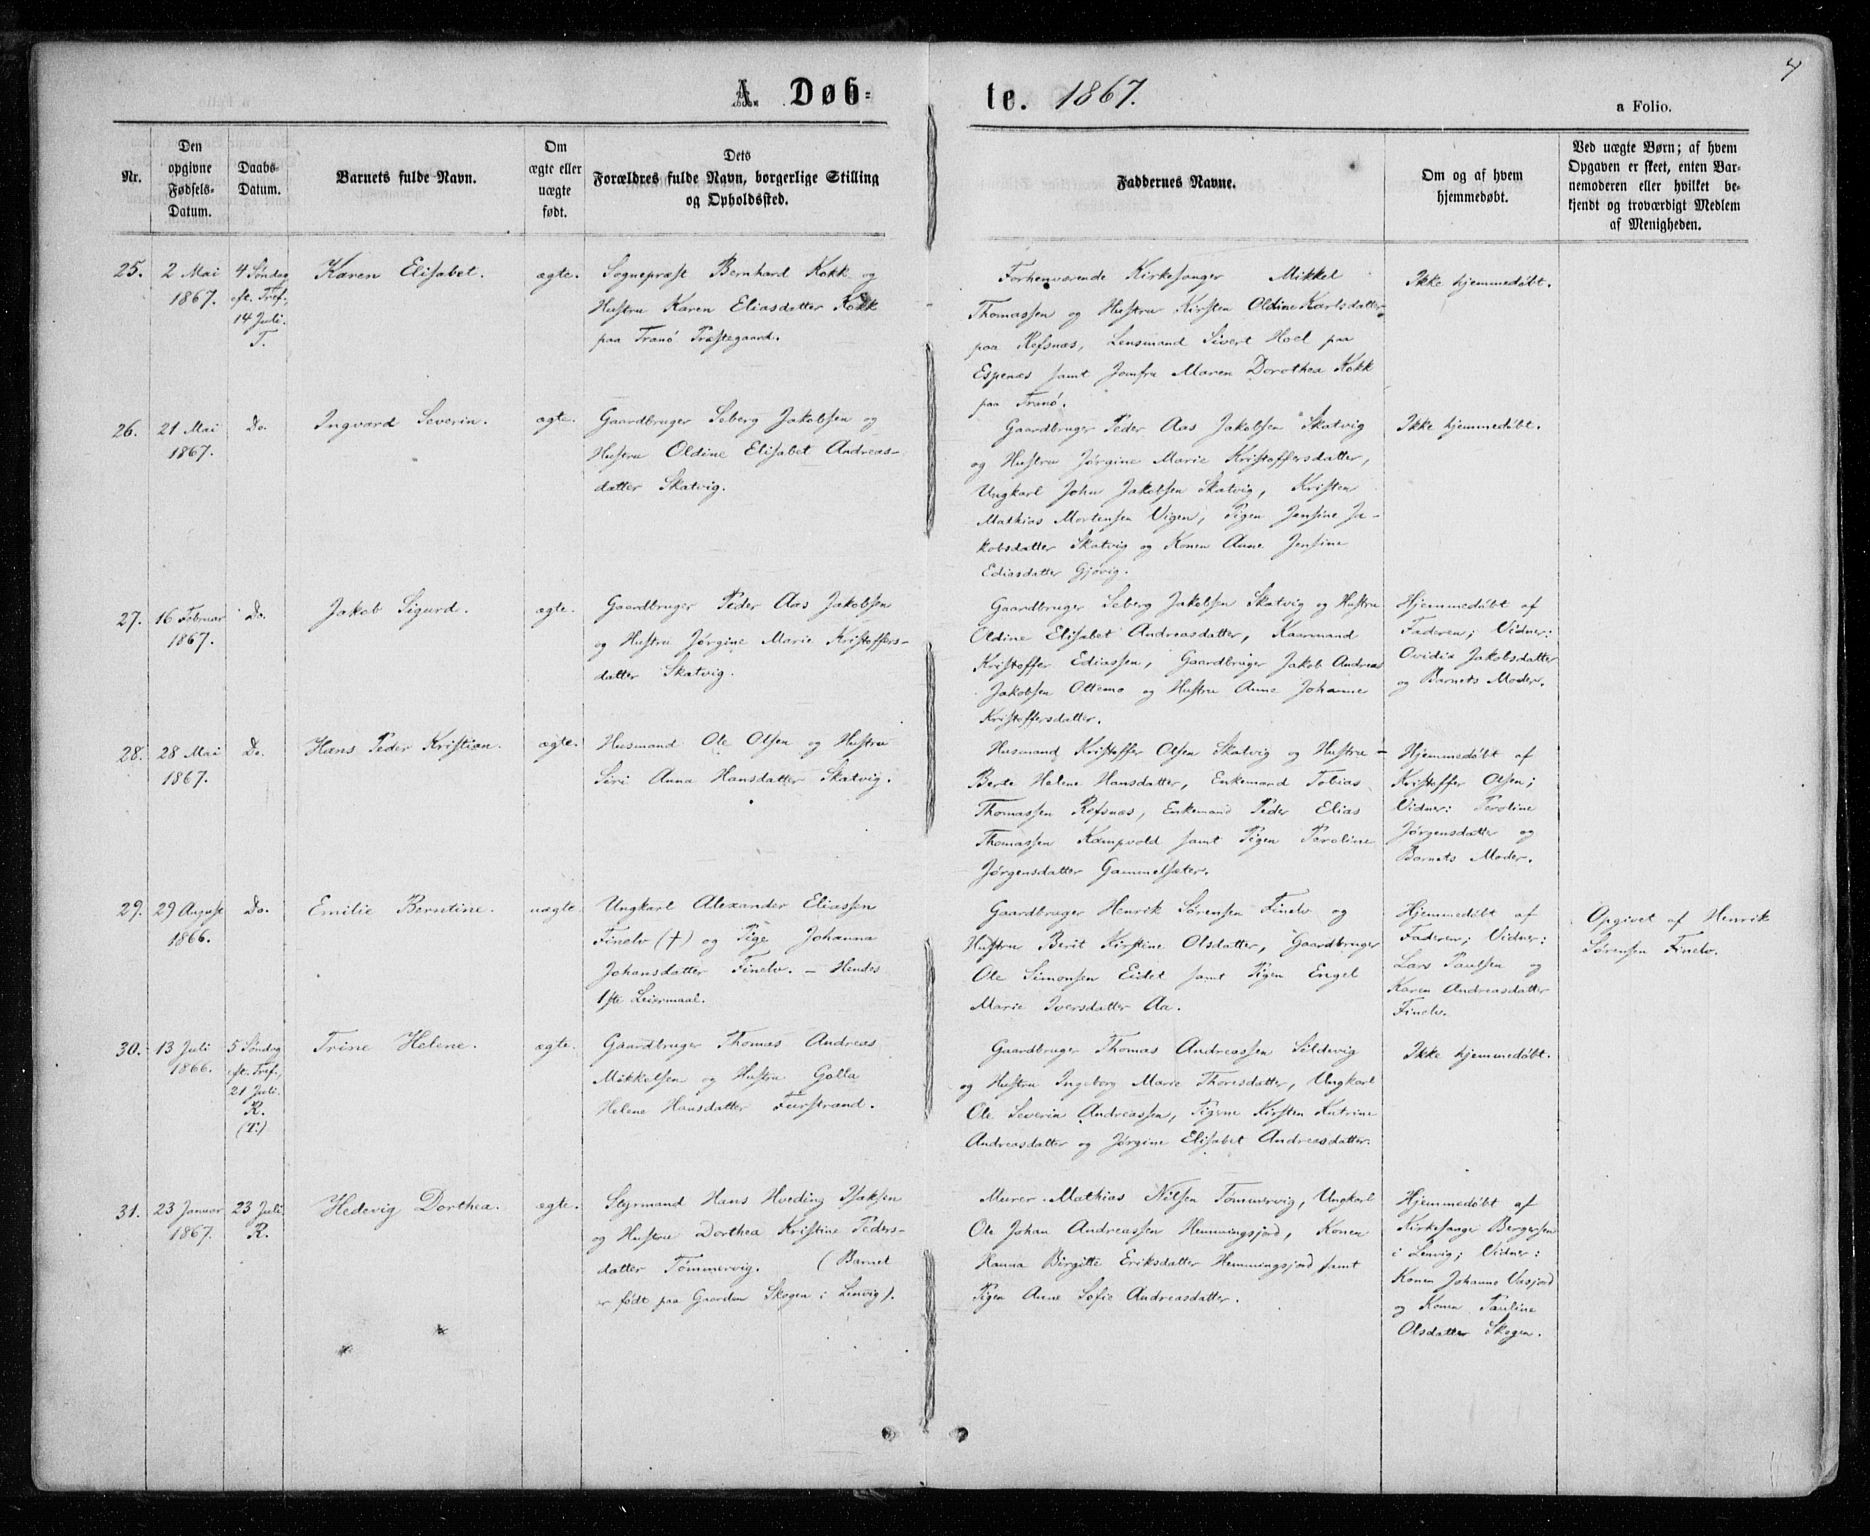 4
A. Døb=
te. 1867.
a Folio.
Nr.
Den
opgivne
Fødsels-
Datum.
Daabs-
Datum.
Barnets fulde Navn.
Om
ægte eller
uægte
født.
Dets
Forældres fulde Navn, borgerlige Stilling
og Opholdssted.
Faddernes Navne.
Om og af hvem
hjemmedøbt.
Ved uægte Børn; af hvem
Opgaven er skeet, enten Bar-
nemoderen eller hvilket be-
kjendt og troværdigt Medlem
af Menigheden.
25.
2 Mai
1867.
4 Søndag
eft. Tref.,
14 Juli.
T.
Karen Elisabet.
ægte.
Sognepræst Bernhard Kokk og
Hustru Karen Eliasdatter Kokk
paa Tranø Præstegaard.
Forhenværende Kirkesanger Mikkel
Thomassen og Hustru Kirsten Oldine Karlsdatter
paa Refsnæs, Lensmand Sivert Hoel paa
Espenæs samt Jomfru Maren Dorothea Kokk
paa Tranø.
Ikke hjemmedøbt.
26.
21 Mai
1867.
Do.
Ingvard Severin.
ægte.
Gaardbruger Seberg Jakobsen og
Hustru Oldine Elisabet Andreas-
datter Skatvig.
Gaardbruger Peder Aas Jakobsen Skatvig
og Hustru Jørgine Marie Kristoffersdatter,
Ungkarl John Jakobsen Skatvig, Kristen
Mathias Mortensen Vigen, Pigen Jensine Ja-
kobsdatter Skatvig og Konen Anne Jensine
Ediasdatter Gjøvig.
Ikke hjemmedøbt.
27.
16 Februar
1867.
Do.
Jakob Sigurd.
ægte.
Gaardbruger Peder Aas Jakobsen
og Hustru Jørgine Marie Kristoffers-
datter Skatvig.
Gaardbruger Seberg Jakobsen Skatvig og Hustru
Oldine Elisabet Andreasdatter, Kaarmand
Kristoffer Ediassen, Gaardbruger Jakob Andreas
Jakobsen Ottemo og Hustru Anne Johanne
Kristoffersdatter.
Hjemmedøbt af
Faderen; Vidner:
Ovidia Jakobsdatter
og Barnets Moder.
28.
28 Mai
1867.
Do.
Hans Peder Kristian.
ægte.
Husmand Ole Olsen og Hustru
Siri Anna Hansdatter Skatvig.
Husmand Kristoffer Olsen Skatvig og Hustru
Berte Helene Hansdatter, Enkemand Tobias
Thomassen Refsnæs, Enkemand Peder Elias
Thomassen Kampvold samt Pigen Peroline
Jørgensdatter Gammelsæter.
Hjemmedøbt af
Kristoffer Olsen;
Vidner: Peroline
Jørgensdatter og
Barnets Moder.
29.
29 August
1866.
Do.
Emilie Berntine.
uægte.
Ungkarl Alexander Eliassen
Finelv (†) og Pige Johanna
Johansdatter Finelv. – Hendes
1ste Leiermaal.
Gaardbruger Henrik Sørensen Finelv og
Hustru Berit Kirstine Olsdatter, Gaardbruger
Ole Simonsen Eidet samt Pigen Engel
Marie Iversdatter Aa.
Hjemmedøbt af
Faderen; Vidner:
Lars Paulsen og
Karen Andreasdatter
Finelv.
Opgivet af Henrik
Sørensen Finelv.
30.
13 Juli
1866.
5 Søndag
eft. Tref.,
21 Juli.
R.
(T.)
Trine Helene.
ægte.
Gaardbruger Thomas Andreas
Mikkelsen og Hustru Golla
Helene Hansdatter Furstrand.
Gaardbruger Thomas Andreassen Sildevig
og Hustru Ingeborg Marie Thoresdatter, Ungkarl
Ole Severin Andreassen, Pigerne Kirsten Katrine
Andreasdatter og Jørgine Elisabet Andreasdatter.
Ikke hjemmedøbt.
31.
23 Januar
1867.
23 Juli
R.
Hedevig Dorthea.
ægte.
Styrmand Hans Hveding Isaksen
og Hustru Dorthea Kristine Peders-
datter Tømmervig. (Barnet
er født paa Gaarden Skogen i Lenvig).
Murer Mathias Nilsen Tømmervig, Ungkarl
Ole Johan Andreassen Hemmingsjord, Konen
Hanna Birgitte Eriksdatter Hemmingsjord samt
Pigen Anne Sofie Andreasdatter.
Hjemmedøbt af
Kirkesanger Bergersen
i Lenvig; Vidner:
Konen Johanne Vasjord
og Konen Pauline
Olsdatter Skogen.